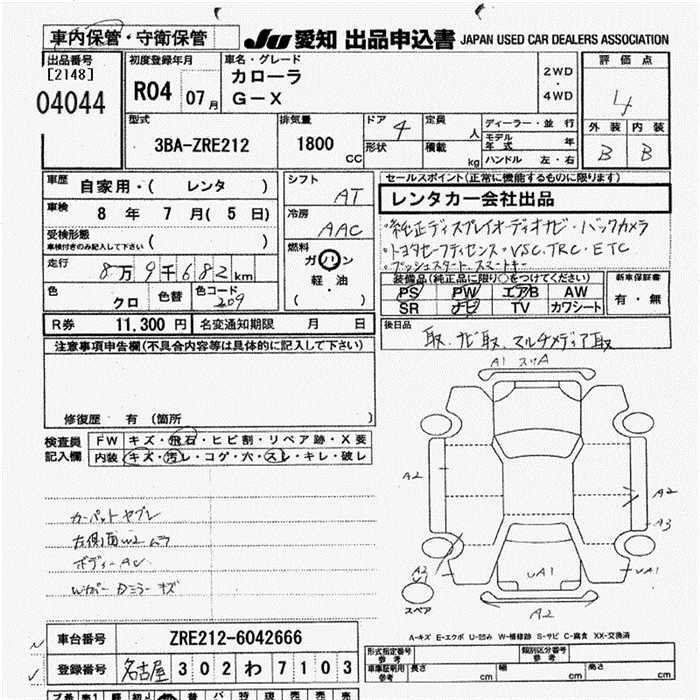 車内保管・守衛保管
JU 愛知 出品申込書 JAPAN USED CAR DEALERS ASSOCIATION
出品番号
[2148]
04044
初度登録年月
R04 07月
車名・グレード
カローラ
G-X
2WD
4WD
評価点
4
外装 内装
B B
型式
3BA-ZRE212
排気量
1800
cc
ドア 4
形状
定員 人
積載 kg
ディーラー・並行
モデル年式 年
ハンドル 左・右
車歴 自家用・( レンタ )
車検 8年 7月 ( 5日 )
受検形態
車検付きのみ記入して下さい ( )
走行 8万9千682km
色 クロ 色替 色コード 209
シフト AT
冷房 AAC
燃料
軽・油
( )
セールスポイント(正常に機能するものに限ります)
レンタカー会社出品
・純正ディスプレイオーディオナビ・バックカメラ
・トヨタセーフティセンス・VSC.TRC.ETC
・プッシュスタート.スマートキー
装備品(純正品に限り○をつけてください)
PS PW エアB AW
SR ナビ TV カワシート
新車保証書
有・無
R券 11,300円 名変通知期限 月 日
後日品
取.ナビ取.マルチメディア取
注意事項申告欄(不具合内容等は具体的に記入して下さい)
修復歴 有 (箇所 )
検査員
記入欄
FW キズ・飛石・ヒビ割・リペア跡・X要
内装 キズ・汚レ・コゲ・穴・スレ・キレ・破レ
カーペットヤブレ
左側面W2ムラ
ボディーAU
A1 スリA
A2
A2
A3
A2
U1
UA1
UA1
A2
スペア
A-キズ E-エクボ U-凹み W-補修跡 S-サビ C-腐食 XX-交換済
車台番号 ZRE212-6042666
登録番号 名古屋 302 わ 7103
形式指定番号
参考
類別区分番号
参考
車庫証明用
参考
長さ cm 幅 cm 高さ cm